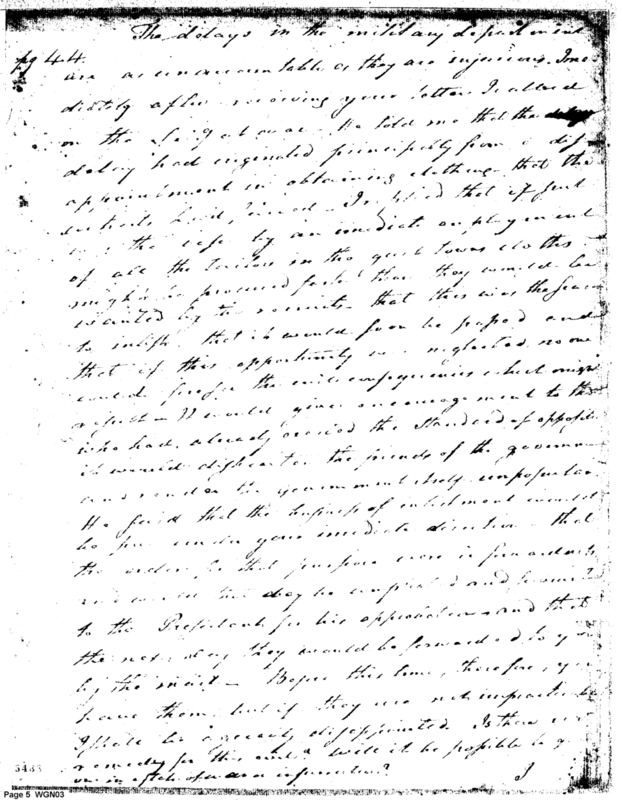 The delays in the military department
pg 44.
are as unaccountable as they are injurious. Imme
diately after receiving your letter I called
on the Sec'y at war. He told me that the
delay had originated principally from a dis
appointment in obtaining clothing, that the
I replied that if
the by an imediate employment
of all the Tailors in the great towns clothes
might be procured faster than they would be
wanted by the recruits - that this was the season
to inlist, that it would soon be passed and
that if this opportunity was neglected no one
could the evil consequences which might
result - It would give encouragement to those
who had already erected the Standard of opposition
it would dishearten the friends of the governm
and render the government itself unpopular
He said that the business of inlistment would
be put under your imediate direction - that
the orders for that purpose were in forwardness
and would this day be completed and
to the President for his approbation and that
the next day they would be forwarded to you
by the mail - Before this time, therefore, you
have them, but if they are not
I shall be agreeably disappointed. Is there no
remedy for this evil? will it be possible to
on in a state of war?
I
5433
Page 5 WGN03